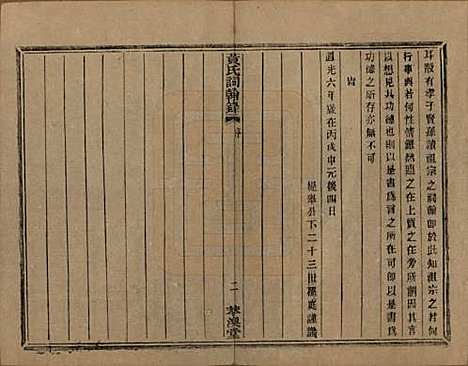 耳設有孝子賢孫讀祖宗之詞翰即於此知祖宗之若何
行事與若何性情儼然臨之在上質之在旁所謂因其言
以想見其功德可也則以是書為言之所在可即以是書為
功德之所存亦無不可
旹
道光六年歲在丙戌中元後四日
提舉公下二十三世溪庭謹識
黃氏詞翰錄
序
二
華漢堂